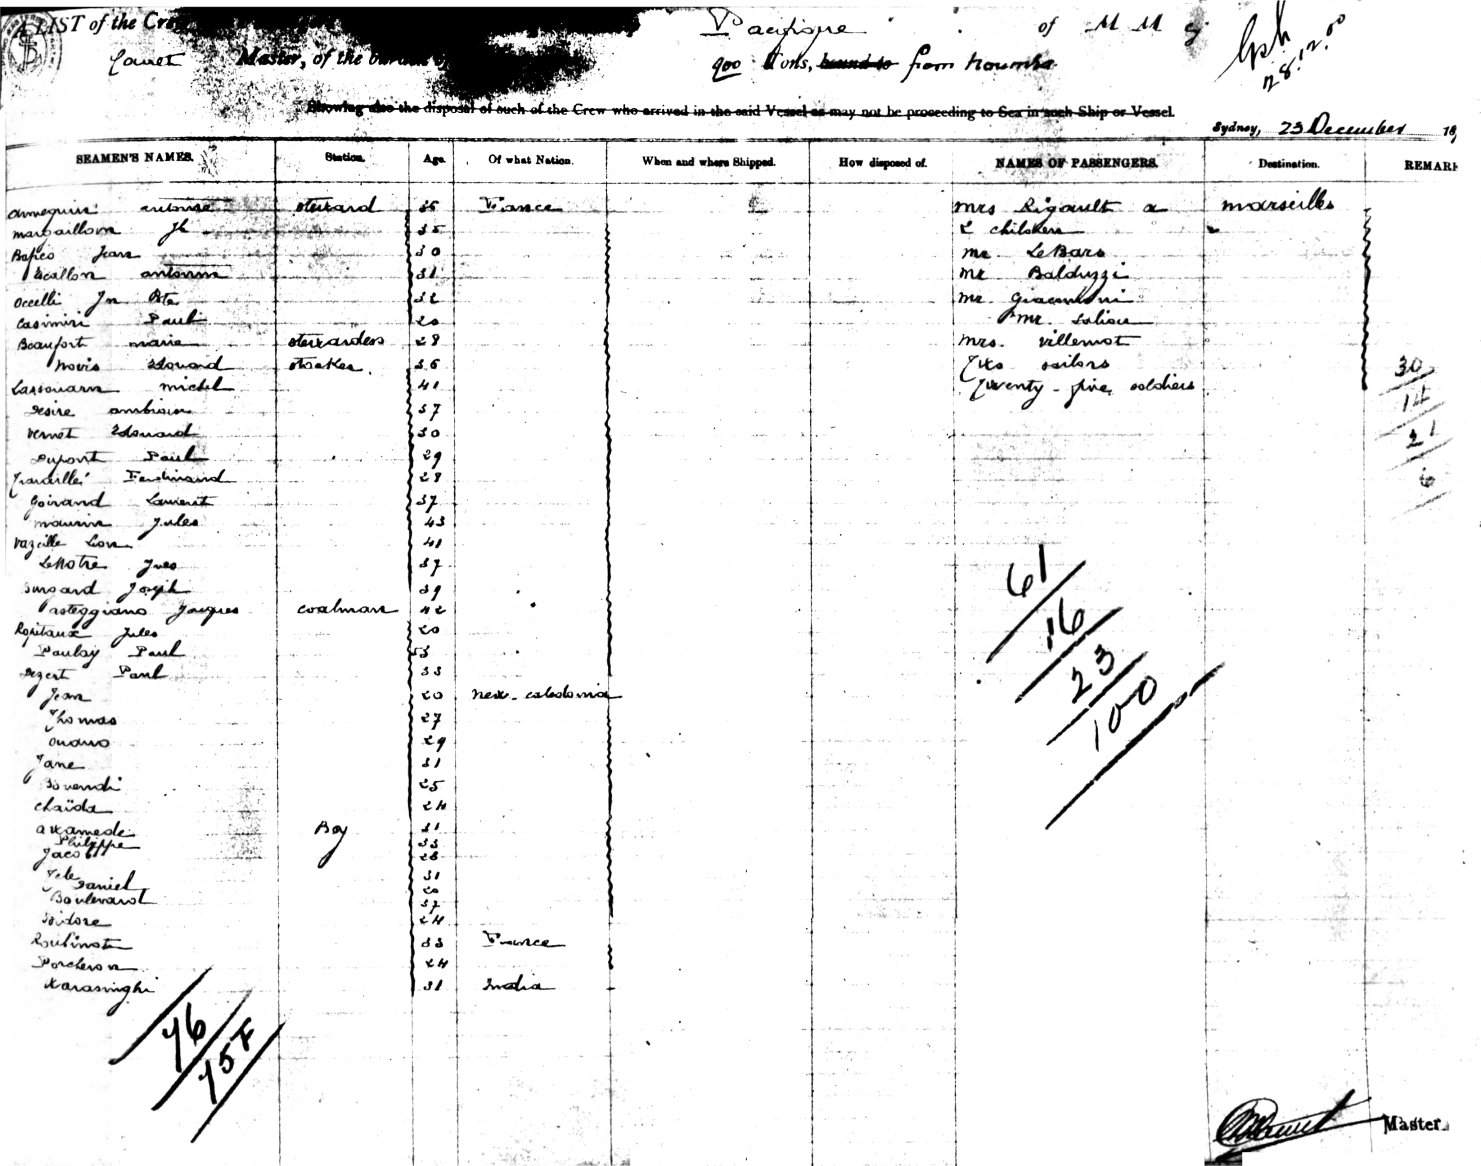 A LIST of the Crew Pacifique of M M Cy
Cauet Master, of the burden of 900 Tons, bound to from Noumea
Gph
28.12.00
Showing also the disposal of such of the Crew who arrived in the said Vessel as may not be proceeding to Sea in such Ship or Vessel.
Sydney, 23 December 18
SEAMEN'S NAMES. Station. Age. Of what Nation. When and where Shipped. How disposed of. NAMES OF PASSENGERS. Destination. REMARK
Antoine steward 36 France Mrs Rigault & Marseilles
Margaillan Jh 35 2 children
Jean 30 Mr LeBars
Antonin 31 Mr Balduzzi
Occelli Jn Bte 32 Mr Giacomoni
Casimiri Paul 20 Mr
Beaufort Marie stewardess 28 Mrs. Villemot
Novis Edouard stoker 36 Two sailors
Lassouarn Michel 41 Twenty-five soldiers
Desire 37
Vernet Edouard 30
Dupont Paul 29
Ferdinand 28
Goirand Laurent 37
Maurin Jules 43
Vazeille Leon 41
LeNotre Yves 37
Joseph 39
Pasteggiano Jacques coalman 42
Jules 20
Paulay Paul 53
Dezert Paul 33
Jean 20 New-Caledonia
Thomas 27
29
Jane 31
25
Chaida 24
Boy 31
Philippe 33
Jacob 28
31
Daniel 20
Boulevard 37
Isidore 24
Roubinot 33 France
Porcheron 24
Karasinghi 31 India
30
14
21
6
61
16
23
100
76
75 F
Master.